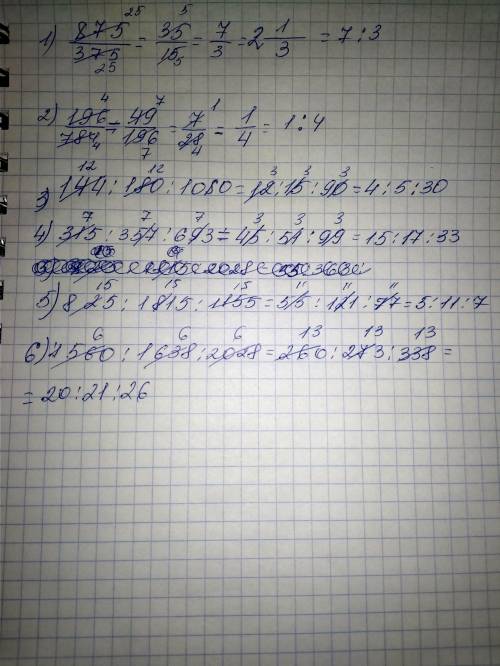 1) 875/375 = 35/15 = 7/3 = 2 1/3 = 7:3
2) 196/784 = 49/196 = 7/28 = 1/4 = 1:4
3) 144:180:1080=12:15:90=4:5:30
4) 315:357:693=45:51:99=15:17:33
5) 825:1815:1155=55:121:77=5:11:7
6) 1560:1638:2028=260:273:338=
=20:21:26